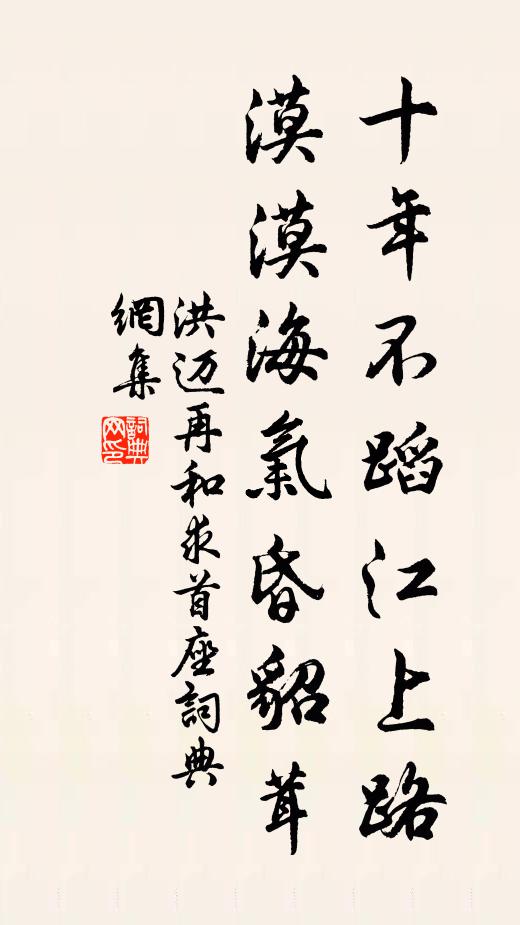 十年不蹈江上路
漠漠海氣昏貂茸
洪迈再和求首座詞典
網集
詞典网印